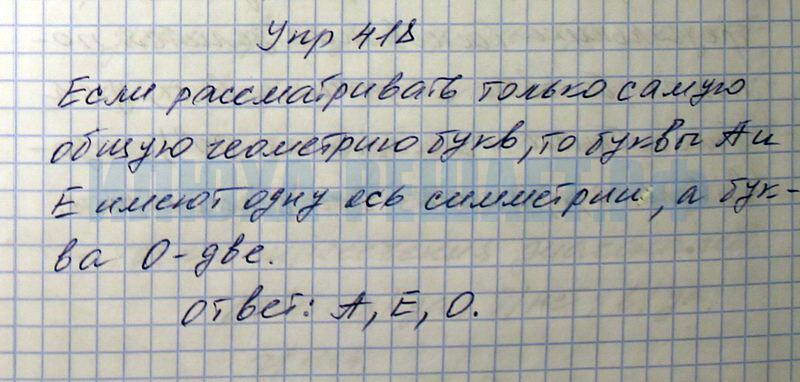 Упр 418
Если рассматривать только самую
общую геометрию букв, то буквы А и
Е имеют одну ось симметрии, а бук-
ва О - две.
ответ: А, Е, О.